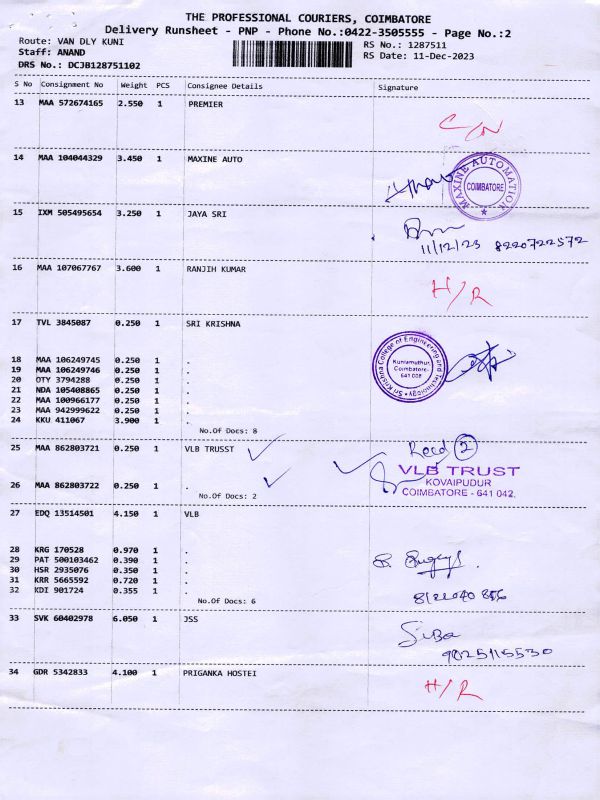 THE PROFESSIONAL COURIERS, COIMBATORE
Delivery Runsheet - PNP - Phone No.:0422-3505555 - Page No.:2
Route: VAN DLY KUNI
Staff: ANAND
DRS No.: DCJB128751102
RS No.: 1287511
RS Date: 11-Dec-2023
S No Consignment No Weight PCS Consignee Details Signature
13 MAA 572674165 2.550 1 PREMIER
14 MAA 104044329 3.450 1 MAXINE AUTO
MAXINE AUTOMATION
COIMBATORE
15 IXM 505495654 3.250 1 JAYA SRI
11/12/23 8220722572
16 MAA 107067767 3.600 1 RANJIH KUMAR
H/R
17 TVL 3845087 0.250 1 SRI KRISHNA
Sri Krishna College of Engineering and Technology
Kuniamuthur,
Coimbatore-
641 008
18 MAA 106249745 0.250 1 .
19 MAA 106249746 0.250 1 .
20 OTY 3794288 0.250 1 .
21 NDA 105408865 0.250 1 .
22 MAA 100966177 0.250 1 .
23 MAA 942999622 0.250 1 .
24 KKU 411067 3.900 1 .
No.Of Docs: 8
25 MAA 862803721 0.250 1 VLB TRUSST
2
VLB TRUST
KOVAIPUDUR
COIMBATORE - 641 042.
26 MAA 862803722 0.250 1 .
No.Of Docs: 2
27 EDQ 13514501 4.150 1 VLB
28 KRG 170528 0.970 1 .
29 PAT 500103462 0.390 1 .
30 HSR 2935076 0.350 1 .
31 KRR 5665592 0.720 1 .
32 KDI 901724 0.355 1 .
No.Of Docs: 6
33 SVK 60402978 6.050 1 JSS
34 GDR 5342833 4.100 1 PRIGANKA HOSTEI
H/R